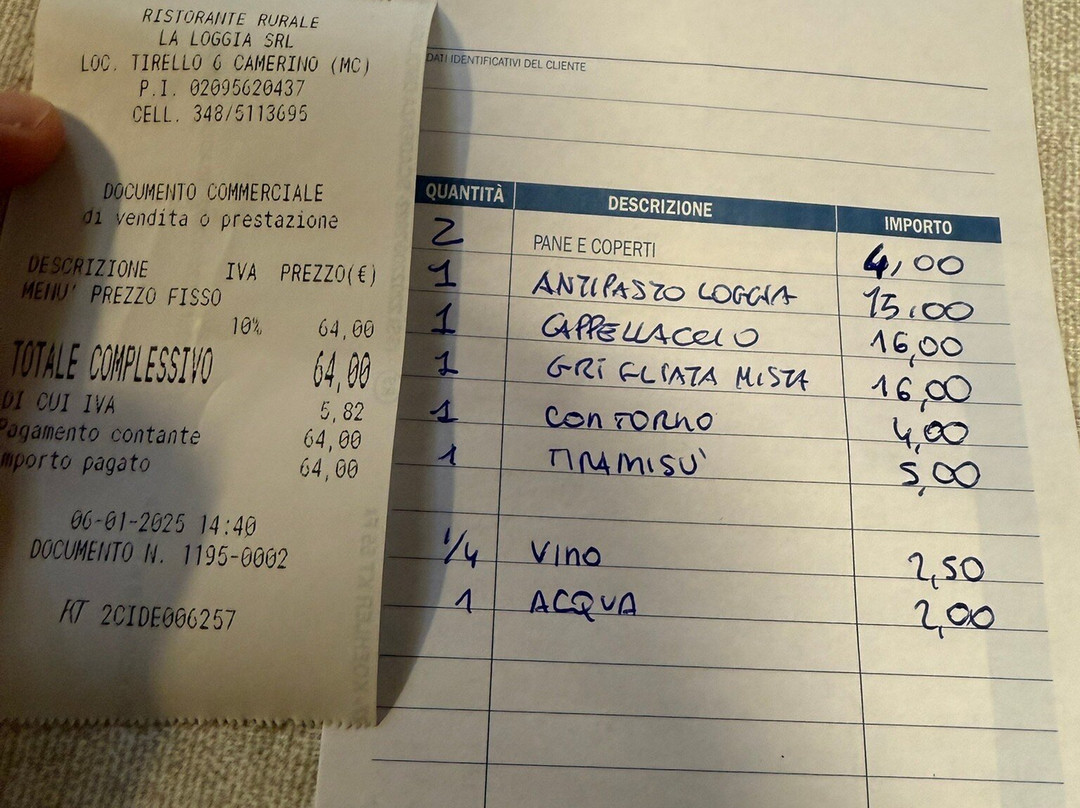 RISTORANTE RURALE
LA LOGGIA SRL
LOC. TIRELLO 6 CAMERINO (MC)
P.I. 02095620437
CELL. 348/5113695
DOCUMENTO COMMERCIALE
di vendita o prestazione
DESCRIZIONE IVA PREZZO(€)
MENU' PREZZO FISSO
10% 64,00
TOTALE COMPLESSIVO 64,00
DI CUI IVA 5,82
Pagamento contante 64,00
mporto pagato 64,00
06-01-2025 14:40
DOCUMENTO N. 1195-0002
RT 2CIDE006257
DATI IDENTIFICATIVI DEL CLIENTE
QUANTITÀ DESCRIZIONE IMPORTO
2 PANE E COPERTI 4,00
1 ANTIPASTO LOGGIA 15,00
1 CAPPELLACCIO 16,00
1 GRIGLIATA MISTA 16,00
1 CONTORNO 4,00
1 TIRAMISU' 5,00
1/4 VINO 2,50
1 ACQUA 2,00